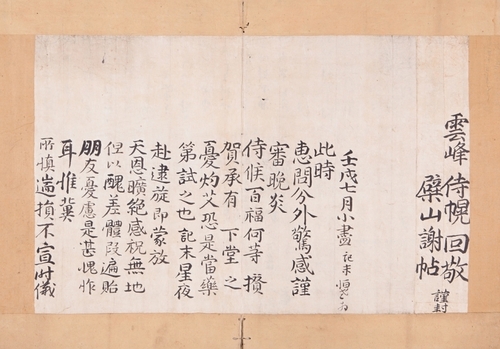 雲峰 侍幌 回敬
檗山謝帖 謹封
壬戌七月小盡 記末
此時
惠問分外驚感謹
審晩炎
侍候百福何等攢
賀承有 下堂 之
憂灼艾恐是當藥
第試之也 記末星夜
赴逮旋即蒙放
天恩曠絶感祝無地
但以醜差體段遍貽
朋友憂慮是甚愧怍
耳惟冀
所愼遄損不宣 儀